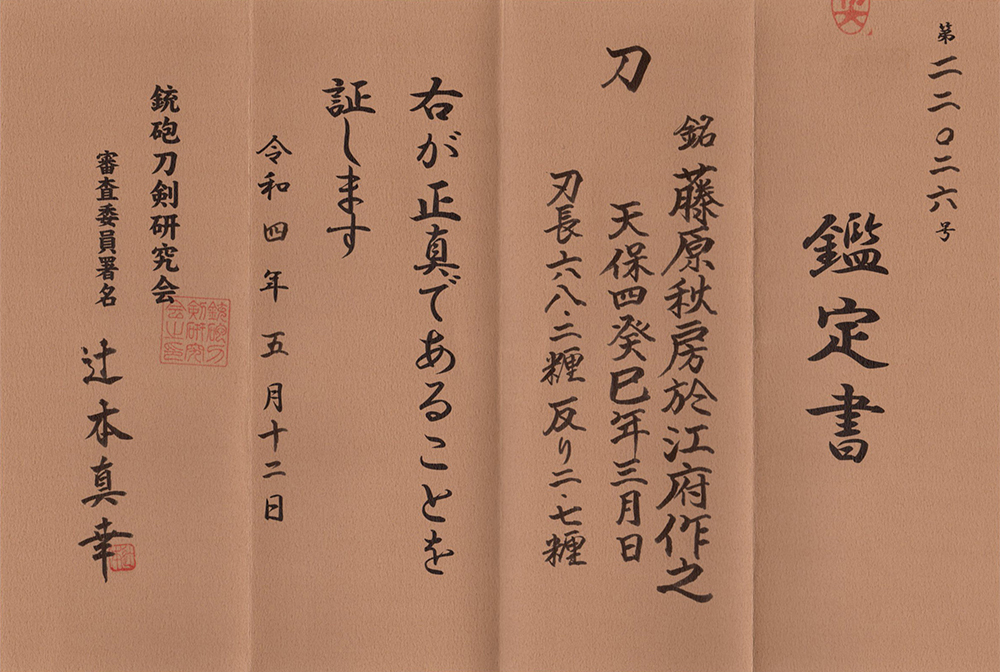 第二二〇二六号
鑑定書
刀
銘 藤原秋房於江府作之
天保四癸巳年三月日
刃長六八・二糎 反り二・七糎
右が正真であることを
証します
令和四年五月十二日
銃砲刀剣研究会
審査委員署名 辻本真幸
銃砲刀
剣研究
会之印